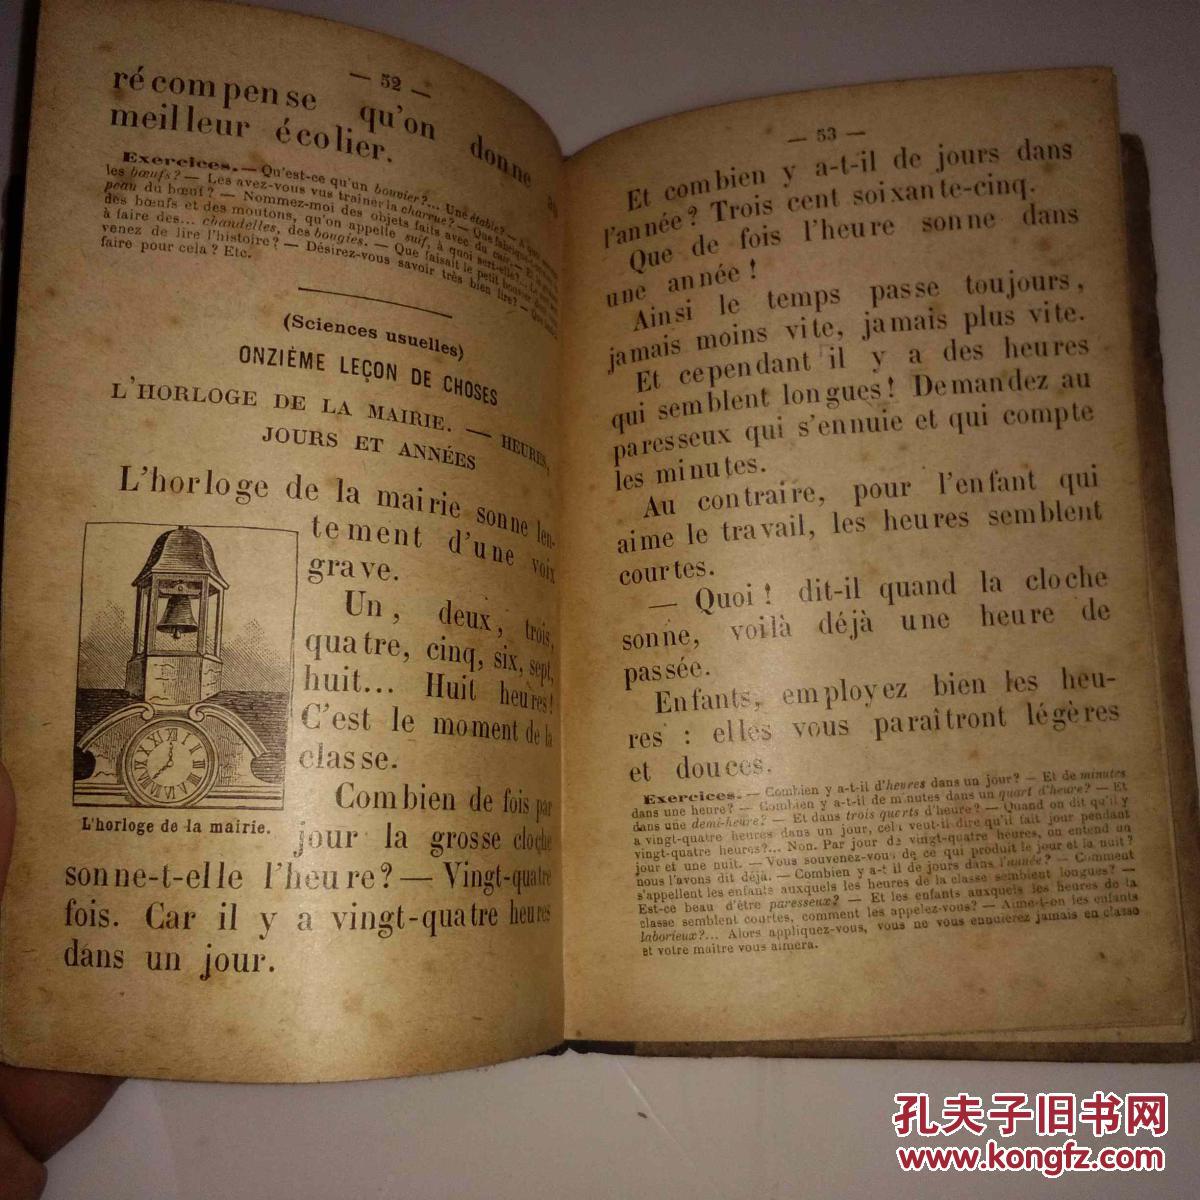 — 52 —
récompense qu'on donne au
meilleur écolier.
Exercices. — Qu'est-ce qu'un bouvier?... Une étable? — A quoi
les bœufs? — Les avez-vous vus traîner la charrue? — Que fabrique-t-on
peau du bœuf? — Nommez-moi des objets faits avec du cuir. — Et
des bœufs et des moutons, qu'on appelle suif, à quoi sert-elle?...
à faire des... chandelles, des bougies. — Que faisait le petit bouvier
venez de lire l'histoire? — Désirez-vous savoir très bien lire? — Que
faire pour cela? Etc.
(Sciences usuelles)
ONZIÈME LEÇON DE CHOSES
L'HORLOGE DE LA MAIRIE. — HEURES,
JOURS ET ANNÉES
L'horloge de la mairie sonne len-
tement d'une voix
grave.
Un, deux, trois,
quatre, cinq, six, sept,
huit... Huit heures!
C'est le moment de la
classe.
Combien de fois par
L'horloge de la mairie.
jour la grosse cloche
sonne-t-elle l'heure? — Vingt-quatre
fois. Car il y a vingt-quatre heures
dans un jour.
— 53 —
Et combien y a-t-il de jours dans
l'année? Trois cent soixante-cinq.
Que de fois l'heure sonne dans
une année!
Ainsi le temps passe toujours,
jamais moins vite, jamais plus vite.
Et cependant il y a des heures
qui semblent longues! Demandez au
paresseux qui s'ennuie et qui compte
les minutes.
Au contraire, pour l'enfant qui
aime le travail, les heures semblent
courtes.
— Quoi! dit-il quand la cloche
sonne, voilà déjà une heure de
passée.
Enfants, employez bien les heu-
res : elles vous paraîtront légères
et douces.
Exercices. — Combien y a-t-il d'heures dans un jour? — Et de minutes
dans une heure? — Combien y a-t-il de minutes dans un quart d'heure? — Et
dans une demi-heure? — Et dans trois quarts d'heure? — Quand on dit qu'il y
a vingt-quatre heures dans un jour, cela veut-il dire qu'il fait jour pendant
vingt-quatre heures?... Non. Par jour de vingt-quatre heures, on entend un
jour et une nuit. — Vous souvenez-vous de ce qui produit le jour et la nuit?
nous l'avons dit déjà. — Combien y a-t il de jours dans l'année? — Comment
s'appellent les enfants auxquels les heures de la classe semblent longues? —
Est-ce beau d'être paresseux? — Et les enfants auxquels les heures de la
classe semblent courtes, comment les appelez-vous? — Aime-t-on les enfants
laborieux?... Alors appliquez-vous, vous ne vous ennuierez jamais en classe
et votre maître vous aimera.
孔夫子旧书网
www.kongfz.com